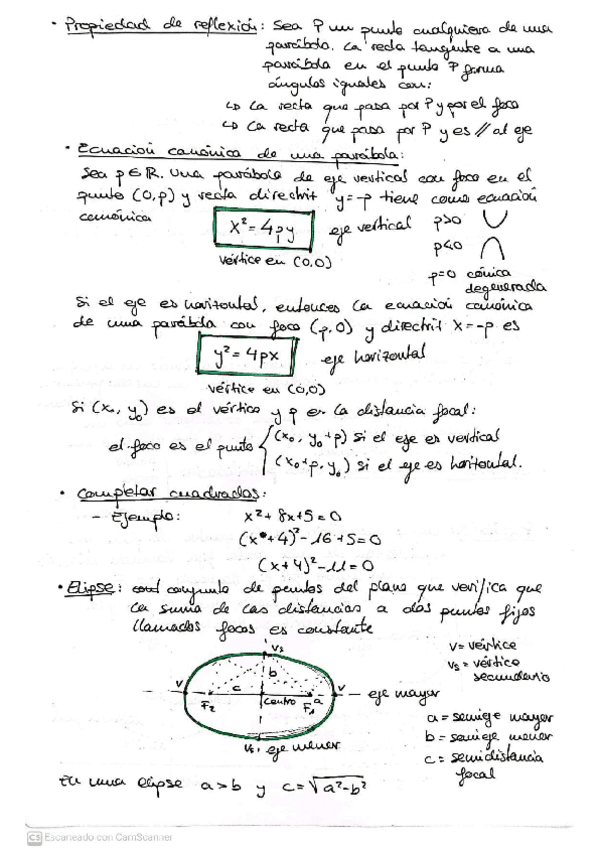 · Propiedad de reflexión: Sea P un punto cualquiera de una
parábola. La recta tangente a una
parábola en el punto P forma
ángulos iguales con:
↳ La recta que pasa por P y por el foco
↳ La recta que pasa por P y es // al eje
· Ecuación canónica de una parábola:
Sea p ∈ ℝ. Una parábola de eje vertical con foco en el
punto (0,p) y recta directriz y=-p tiene como ecuación
canónica
x² = 4py eje vertical p>0
p<0
vértice en (0,0)
p=0 cónica
degenerada
Si el eje es horizontal, entonces la ecuación canónica
de una parábola con foco (p,0) y directriz x=-p es
y² = 4px eje horizontal
vértice en (0,0)
Si (x₀, y₀) es el vértice y p es la distancia focal:
el foco es el punto { (x₀, y₀+p) si el eje es vertical
(x₀+p, y₀) si el eje es horizontal.
· Completar cuadrados:
- Ejemplo: x²+8x+5=0
(x+4)²-16+5=0
(x+4)²-11=0
· Elipse: conjunto de puntos del plano que verifica que
la suma de las distancias a dos puntos fijos
llamados focos es constante
v = vértice
vs = vértice
secundario
vs
b
v c a v
F₂ centro F₁
eje mayor
vs eje menor
a = semieje mayor
b = semieje menor
c = semidistancia
focal
En una elipse a>b y c=√a²-b²
CS Escaneado con CamScanner